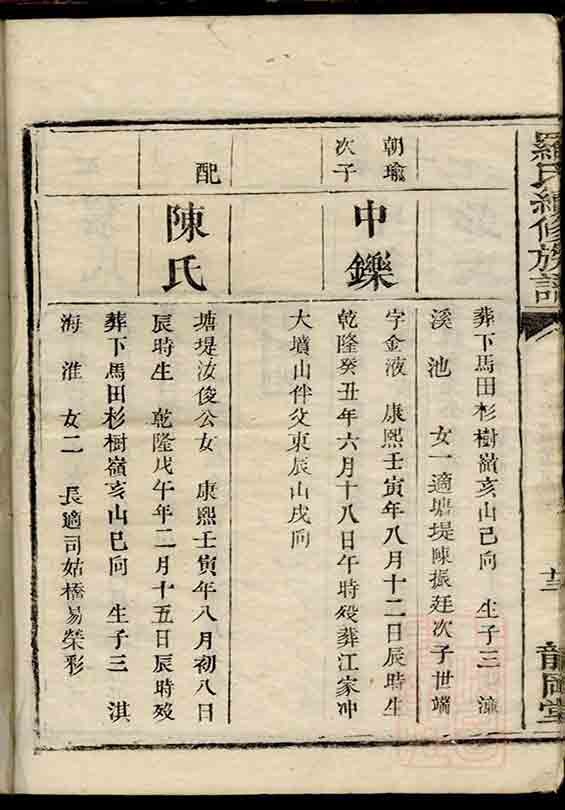 羅氏續修族譜
龍岡堂
葬下馬田杉樹嶺亥山巳向 生子三 濂
溪 池 女一適塘堤陳振廷次子世端
朝瑜次子
中鑠
字金液 康熙壬寅年八月十二日辰時生
乾隆癸丑年六月十八日午時殁葬江家冲
大墳山伴父東辰山戌向
配
陳氏
塘堤汝俊公女 康熙壬寅年八月初八日
辰時生 乾隆戊午年二月十五日辰時殁
葬下馬田杉樹嶺亥山巳向 生子三 淇
海 淮 女二 長適司姑橋易榮彩